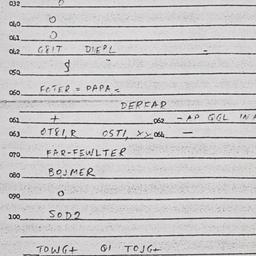 032 0
040 0
041 0
042 G8IT DIEPL -
050 §
060 FOTER = PAPA =
DEPCAP
061 + 062 - AP GGL IN A
063 OT81,R OSTI, 064 —
070 FAR-FEWLTER
080 BOJMER
090 0
100 SOD2
TOWG+ QI TOJG+